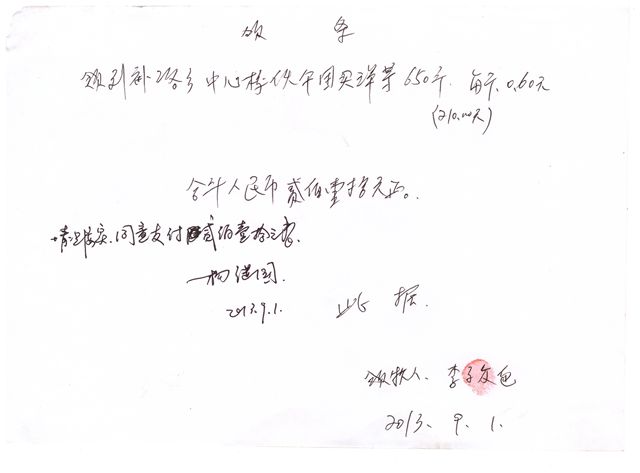 领 条
领到补 中心校伙 买洋芋650斤. 每斤0.60元
(210.00元)
合计人民币贰佰壹拾元正。
情况属实.同意支付贰佰壹拾元
2013.9.1.
此 据.
领款人. 李 
2013. 9. 1.